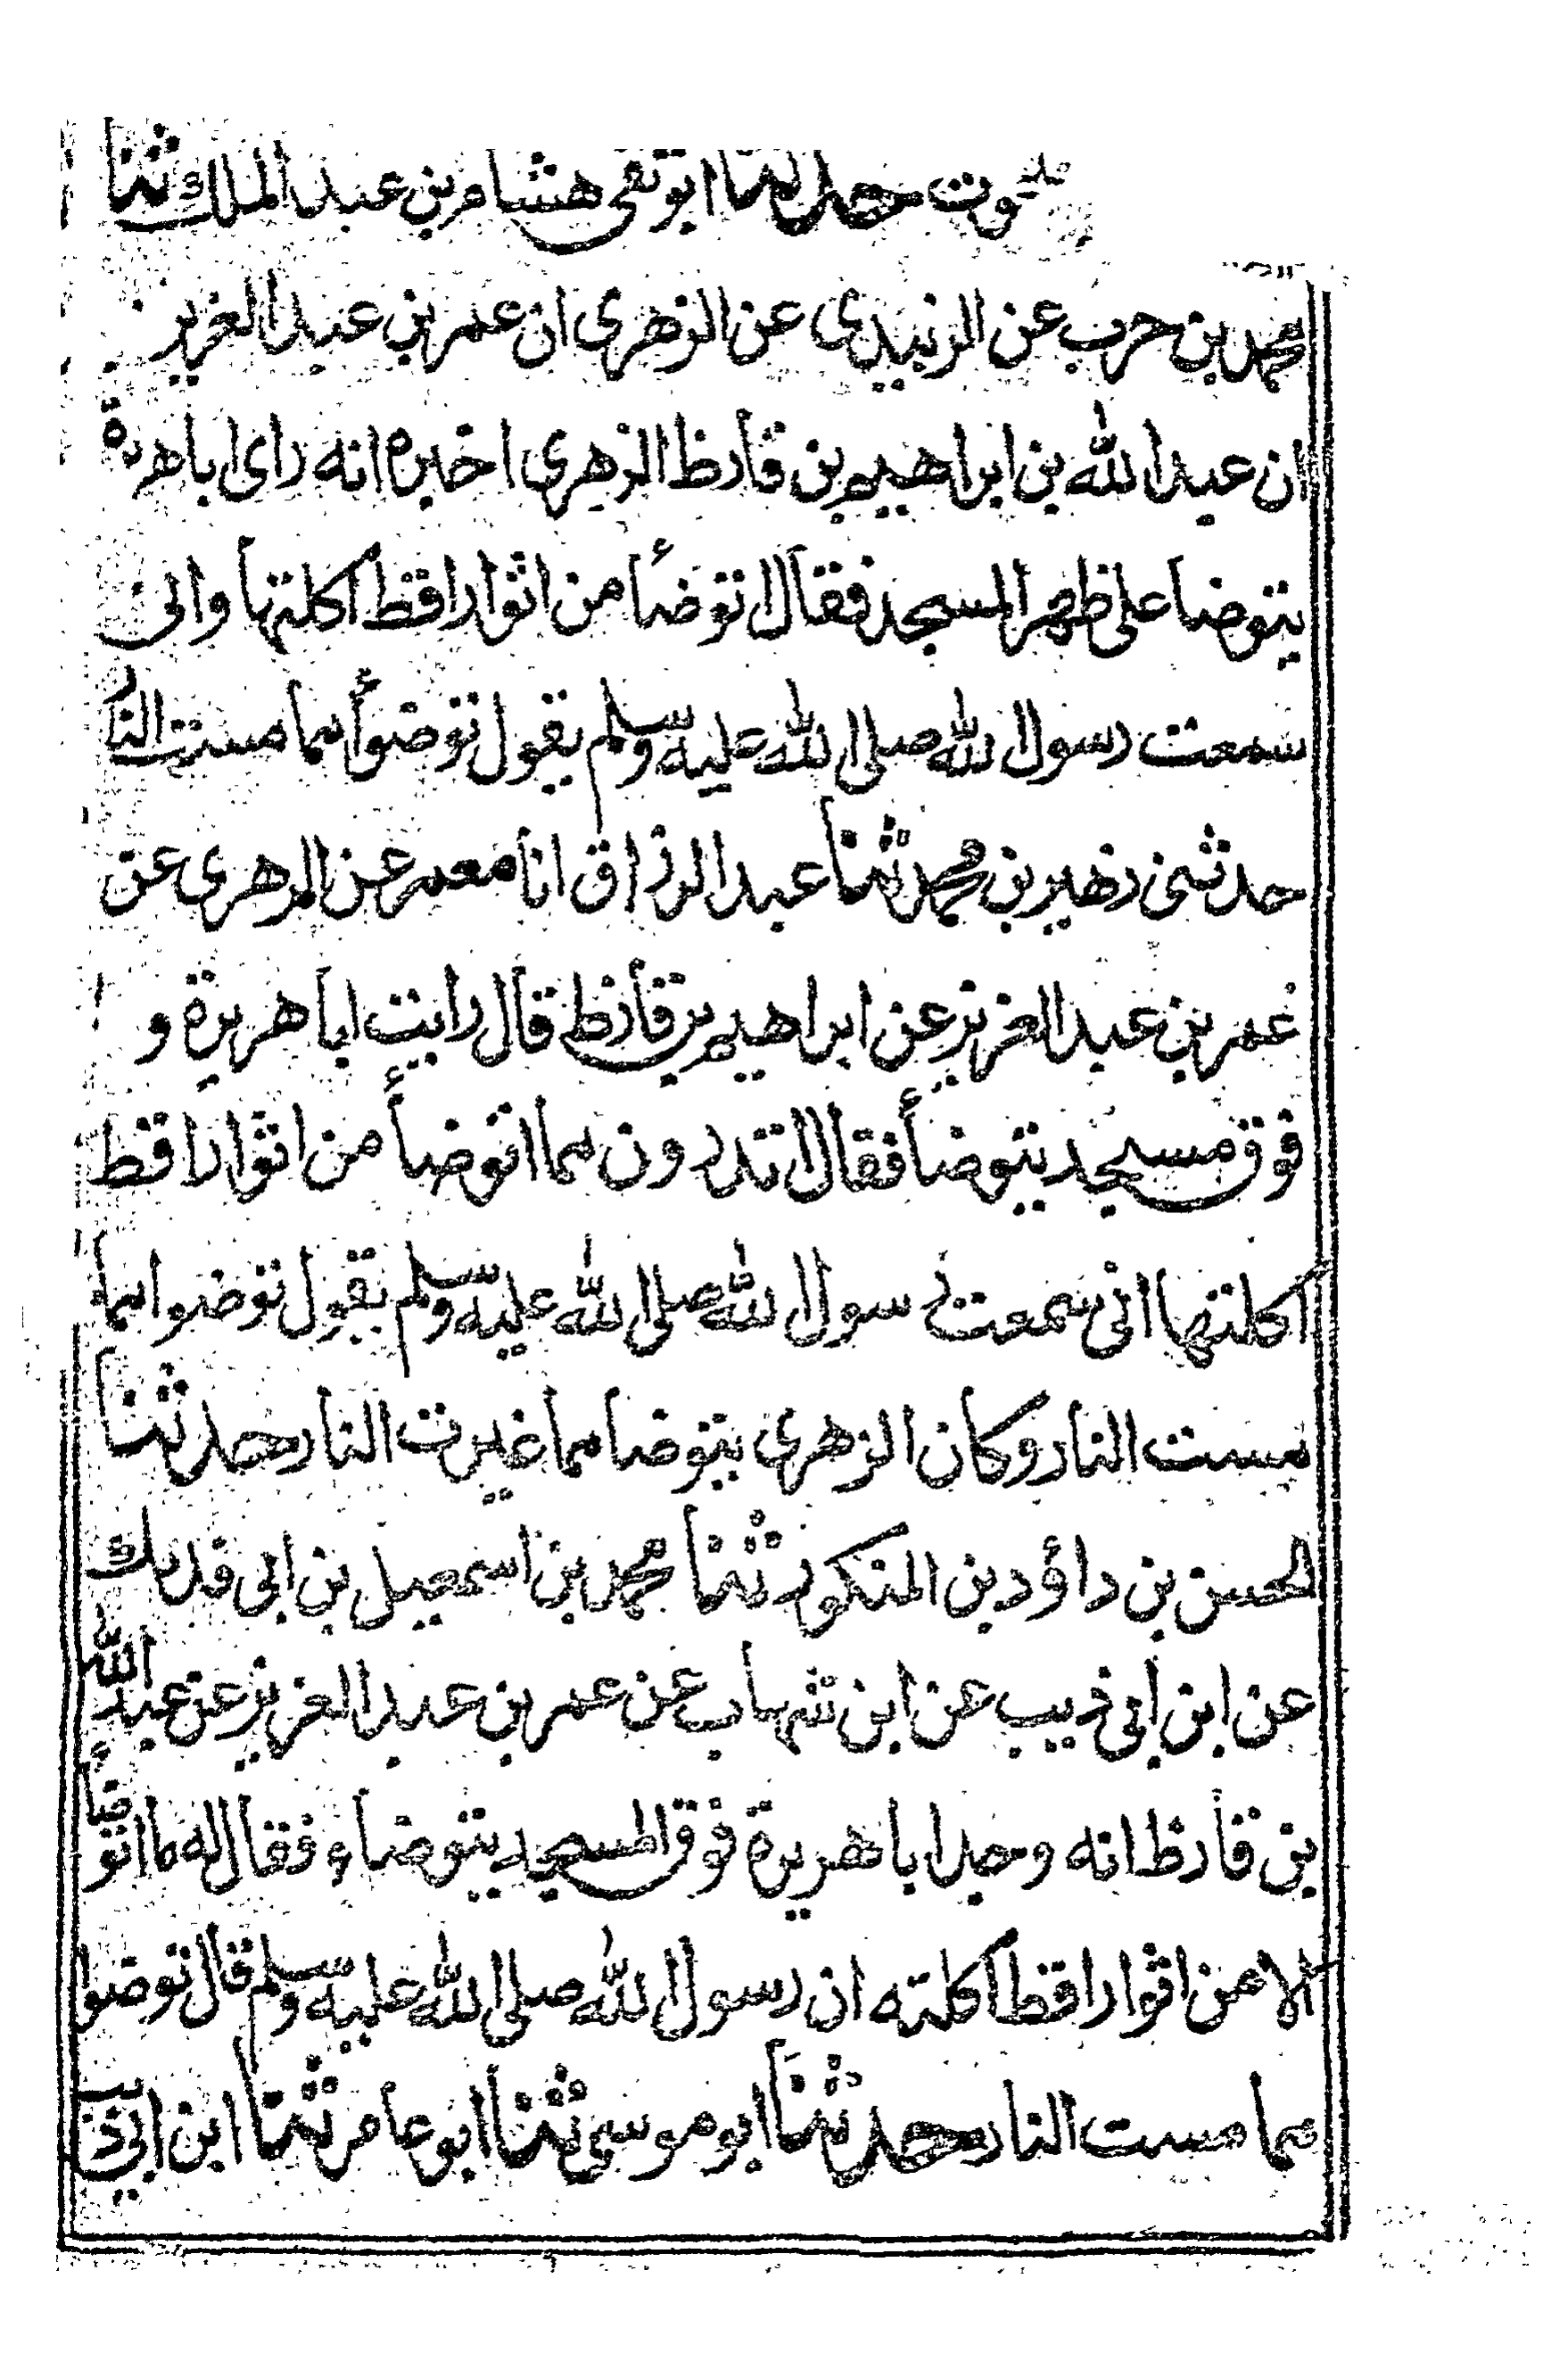 حدثنا ابو تقى هشام بن عبد الملك ثنا
محمد بن حرب عن الزبيدى عن الزهرى ان عمر بن عبد العزيز
ان عبد الله بن ابراهيم بن قارظ الزهرى اخبره انه راى ابا هريرة
يتوضا على ظهر المسجد فقال اتوضأ من اثوار اقط اكلتها وانى
سمعت رسول الله صلى الله عليه وسلم يقول توضوأ مما مست النار
حدثنى زهير بن محمد ثنا عبد الرزاق انا معمر عن الزهرى عن
عمر بن عبد العزيز عن ابراهيم بن قارظ قال رايت ابا هريرة و
فوق مسجد يتوضأ فقال اتدرون مما اتوضأ من اثوار اقط
اكلتها انى سمعت رسول الله صلى الله عليه وسلم يقول توضوا مما
مست النار وكان الزهرى يتوضا مما غيرت النار حدثنا
الحسن بن داؤد بن المنكدر ثنا محمد بن اسمعيل بن ابى فديك
عن ابن ابى ذيب عن ابن شهاب عن عمر بن عبد العزيز عن عبد الله
بن قارظ انه وجد ابا هريرة فوق المسجد يتوضاء فقال له ما اتوضأ
الا من اثوار اقط اكلته ان رسول الله صلى الله عليه وسلم قال توضوا
مما مست النار حدثنا ابو موسى ثنا ابو عامر ثنا ابن ابى ذيب